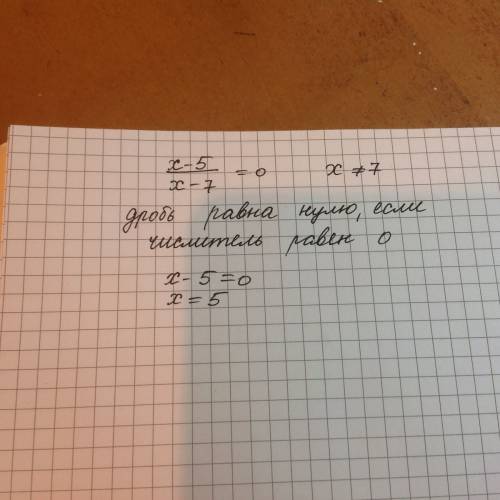 x-5/x-7 = 0 x ≠ 7
дробь равна нулю, если
числитель равен 0
x - 5 = 0
x = 5